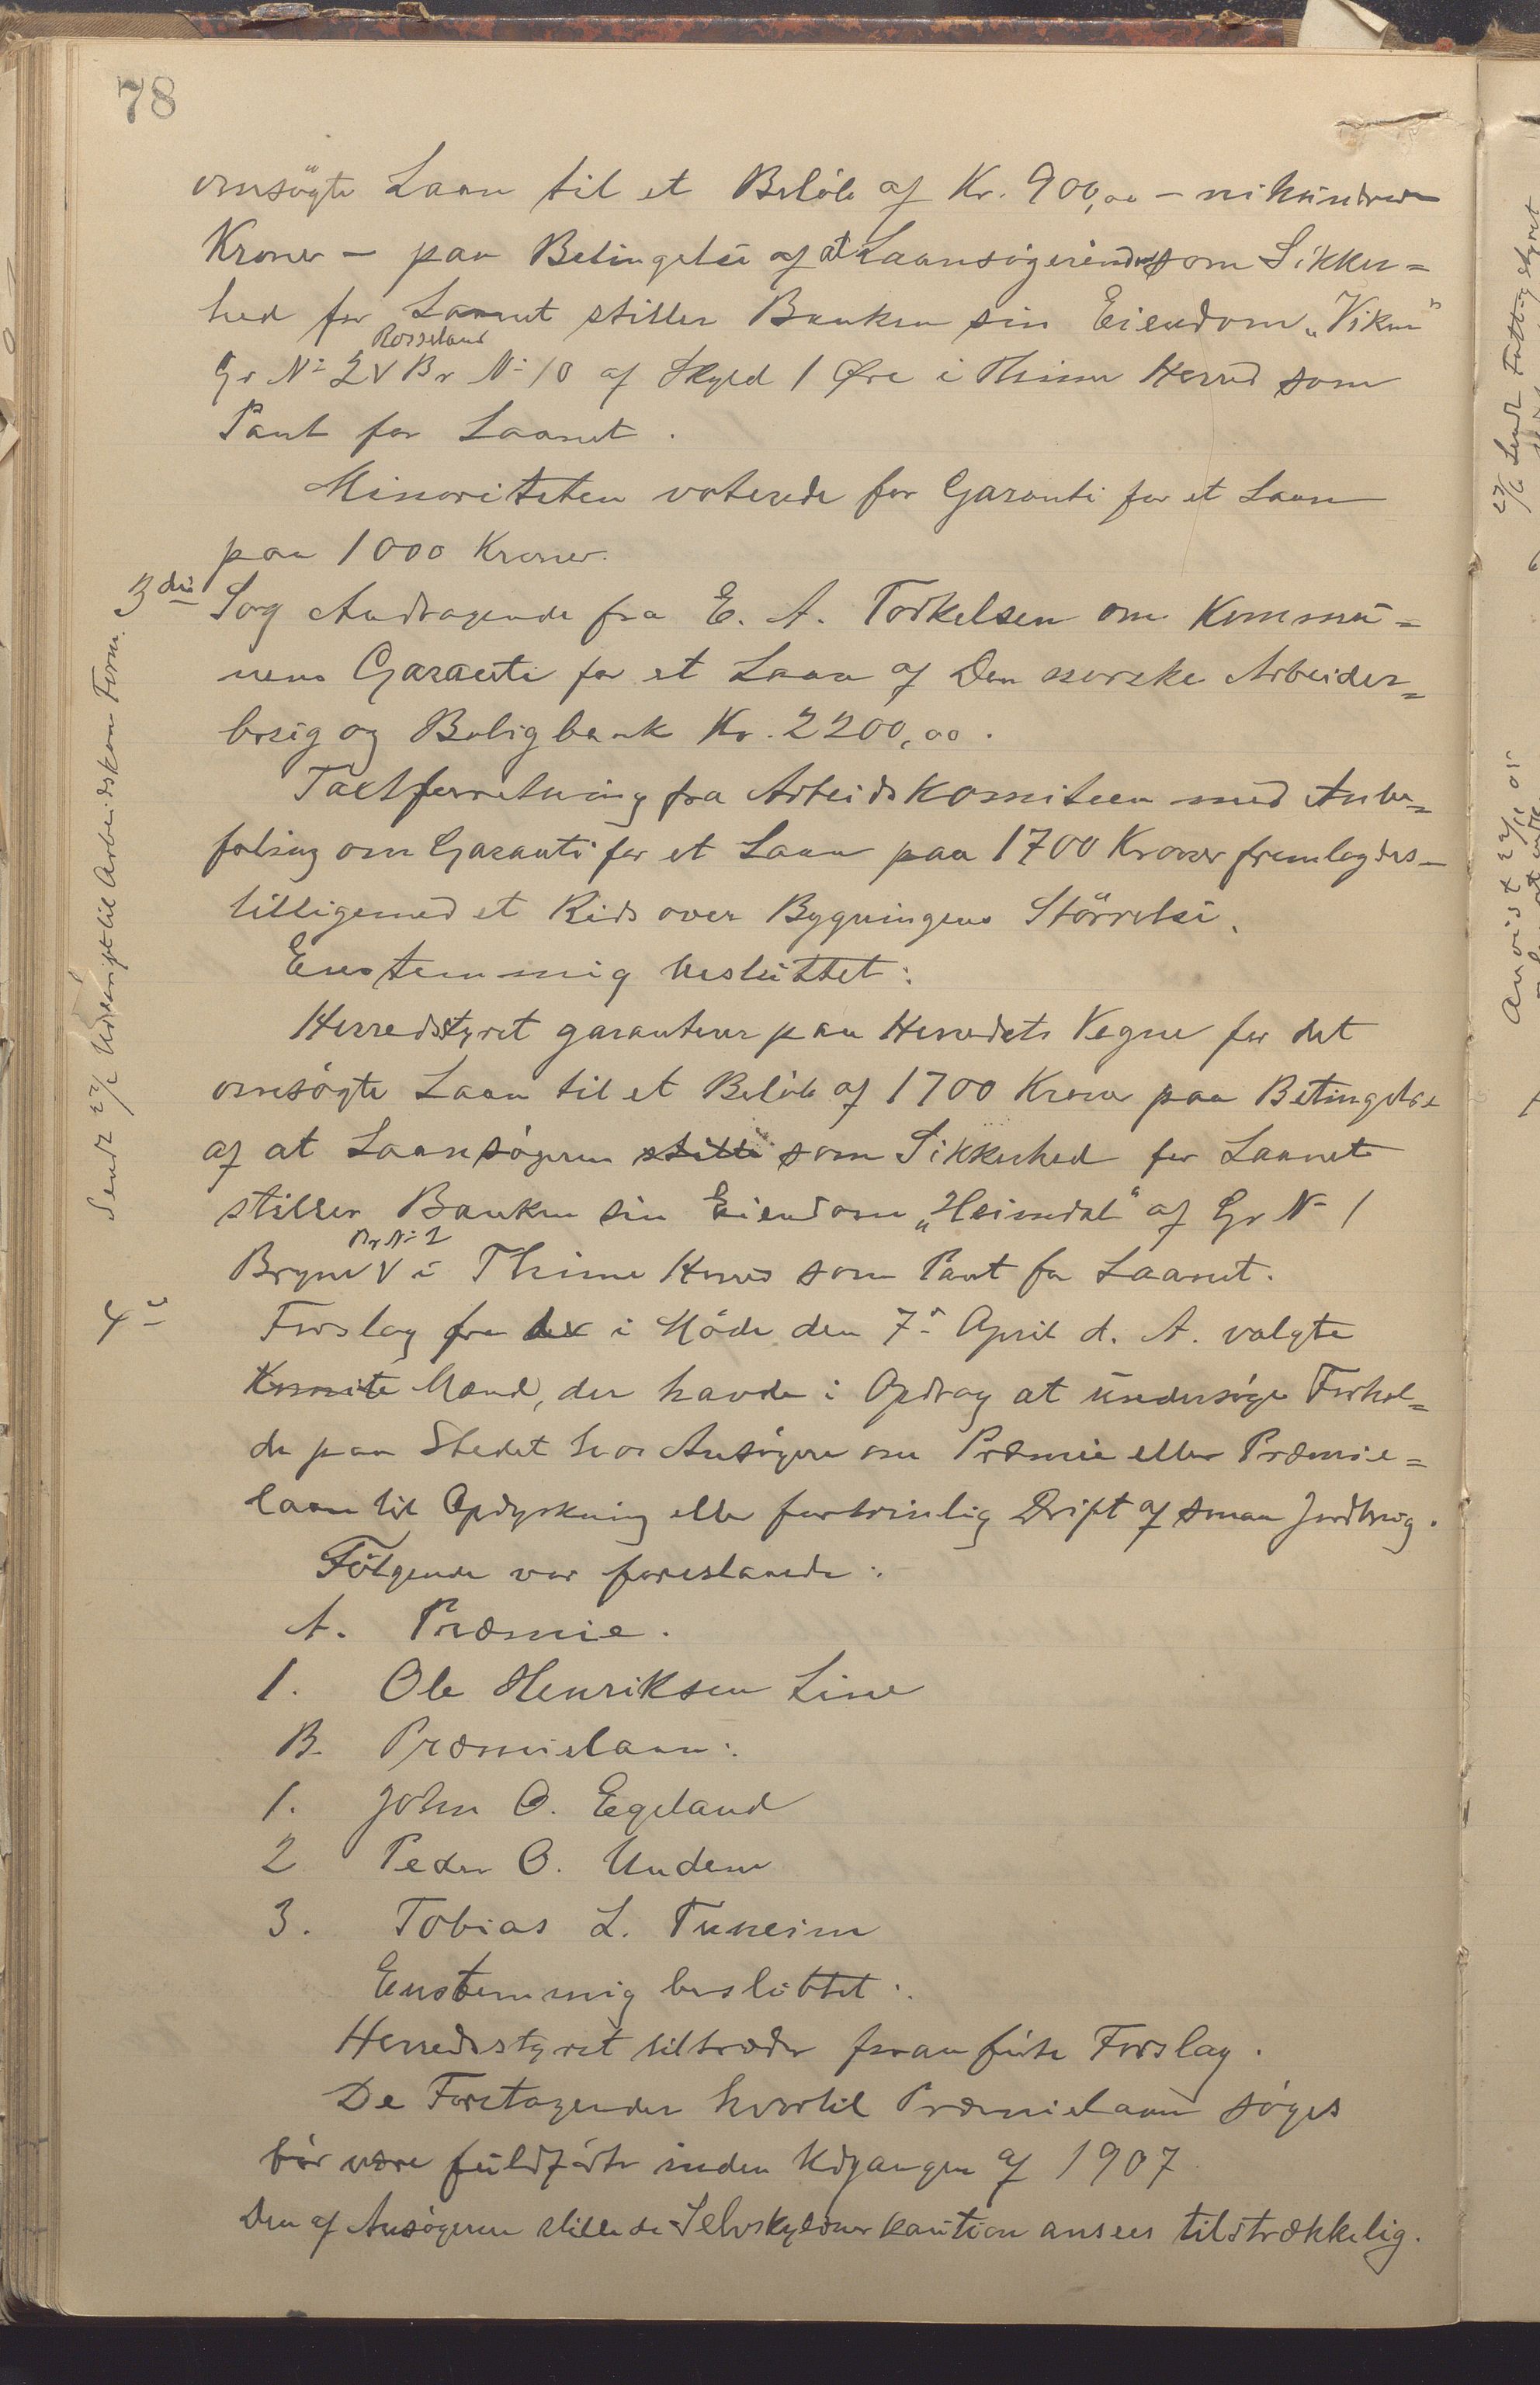 78
omsögte Laan til et Beløb af Kr. 900,00 – nihundrede
Kroner – paa Betingelse af at Laansøgerinden som Sikker=
hed for Laanet stiller Banken sin Eiendom „Viken"
Rosseland
Gr No 2 V Br No 10 af Skyld 1 Øre i Thime Herred som
Pant for Laanet.
Minoriteten voterede for Garanti for et Laan
paa 1000 Kroner.
3die Sag Andragende fra E. A. Torkelsen om Kommu=
nens Garanti for et Laan af Den norske Arbeider=
brug og Boligbank Kr. 2200,00.
Taxtforretning fra Arbeidskomiteen med Anbe=
faling om Garanti for et Laan paa 1700 Kroner fremlagdes
tilligemed et Rids over Bygningens Störrelse.
Enstemmig besluttet:
Herredstyret garanterer paa Herredets Vegne for det
omsögte Laan til et Beløb af 1700 Kroner paa Betingelse
af at Laansøgeren stille som Sikkerhed for Laanet
stiller Banken sin Eiendom „Heimdal" af Gr No 1
Br No 2
Bryne V i Thime Herred som Pant for Laanet.
4de Forslag fra de i Möde den 7de April d. A. valgte
Komite Mænd, der havde i Opdrag at undersøge Forhol=
de paa Stedet hos Ansøgere om Præmie eller Præmie=
laan til Opdyrkning eller fortrinlig Drift af smaa Jordbrug.
Følgende var foreslaaede:
A. Præmie.
1. Ole Henriksen Line
B. Præmielaan:
1. John O. Eegeland
2 Peder O. Undem
3. Tobias L. Tuneim
Enstemmig besluttet:
Herredsstyret tiltræder foranførte Forslag.
De Foretagender hvortil Præmielaan søges
bör være fuldførte inden Udgangen af 1907
Den af Ansøgeren stillede Selvskyldnerkaution ansees tilstrækkelig.
Sendt 27/6 Udskrift til Arbeidskom Form.
27/6 Sendt Fattigstyret
Anvist